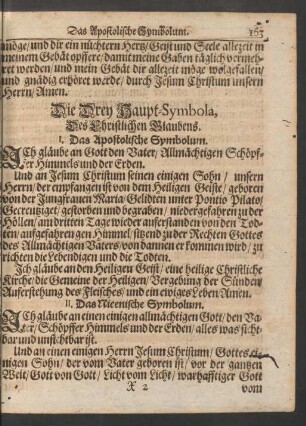 Das Apostolische Symbolum. 163
möge/ und dir ein nüchtern Hertz/ Geist und Seele allezeit in
meinem Gebät opffere/ damit meine Gaben täglich vermeh-
ret werden/ und mein Gebät dir allezeit möge wolgefallen/
und gnädig erhöret werde/ durch Jesum Christum unsern
Herrn/ Amen.
Die Drey Haupt-Symbola,
Des Christlichen Glaubens.
I. Das Apostolische Symbolum.
ICh gläube an Gott den Vater/ Allmächtigen Schöpf-
fer Himmels und der Erden.
Und an Jesum Christum seinen einigen Sohn/ unsern
Herrn/ der empfangen ist von dem Heiligen Geiste/ geboren
von der Jungfrauen Maria/ Gelidten unter Pontio Pilato/
Gecreutziget/ gestorben und begraben/ niedergefahren zu der
Höllen/ am dritten Tage wieder aufferstanden von den Tod-
ten/ auffgefahren gen Himmel/ sitzend zu der Rechten Gottes
des Allmächtigen Vaters/ von dannen er kommen wird/ zu
richten die Lebendigen und die Todten.
Ich gläube an den Heiligen Geist/ eine heilige Christliche
Kirche/ die Gemeine der Heiligen/ Vergebung der Sünden/
Aufferstehung des Fleisches/ und ein ewiges Leben/ Amen.
II. Das Nicenische Symbolum.
ICh gläube an einen einigen allmächtigen Gott/ den Va-
ter/ Schöpffer Himmels und der Erden/ alles was sicht-
bar und unsichtbar ist.
Und an einen einigen Herrn Jesum Christum/ Gottes ei-
nigen Sohn/ der vom Vater geboren ist/ vor der gantzen
Welt/ Gott von Gott/ Licht vom Licht/ warhafftiger Gott
X 2 vom